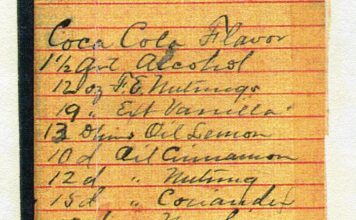 Coca Cola Flavor
1½ Alcohol
12 oz F.E. Nutmegs
19 " Ext Vanilla
13 Oil Lemon
10 d Oil Cinnamon
12 d " Nutmeg
15 d " Coriander